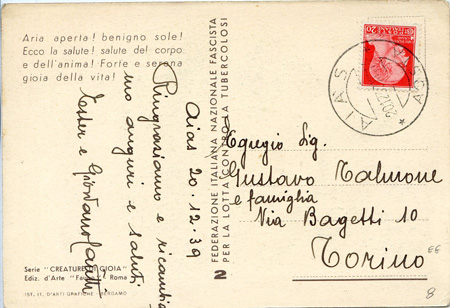 Aria aperta! benigno sole!
Ecco la salute! salute del corpo
e dell'anima! Forte e serena
gioia della vita!
Aias 20.12.39
Ringraziamo e ricambia
mo auguri e saluti
Ester e Giordano
Serie "CREATURE DI GIOIA"
Ediz. d'Arte Roma
IST. IT. D'ARTI GRAFICHE - BERGAMO
FEDERAZIONE ITALIANA NAZIONALE FASCISTA
PER LA LOTTA CONTRO LA TUBERCOLOSI
2
20
AIAS
AOSTA
Egregio Sig.
Gustavo Talmone
e famiglia
Via Bagetti 10
Torino
EE
8